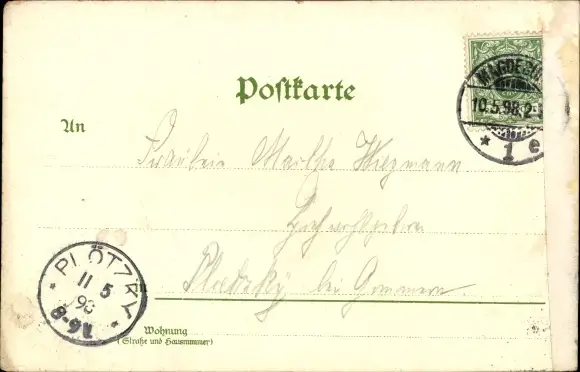 Postkarte
MAGDEBURG
10.5.98.2-
* 1 e
An
Fräulein Martha Wiegmann
bei Gommern.
PLÖTZKY
11 5
98
8-9V.
Wohnung
(Straße und Hausnummer)